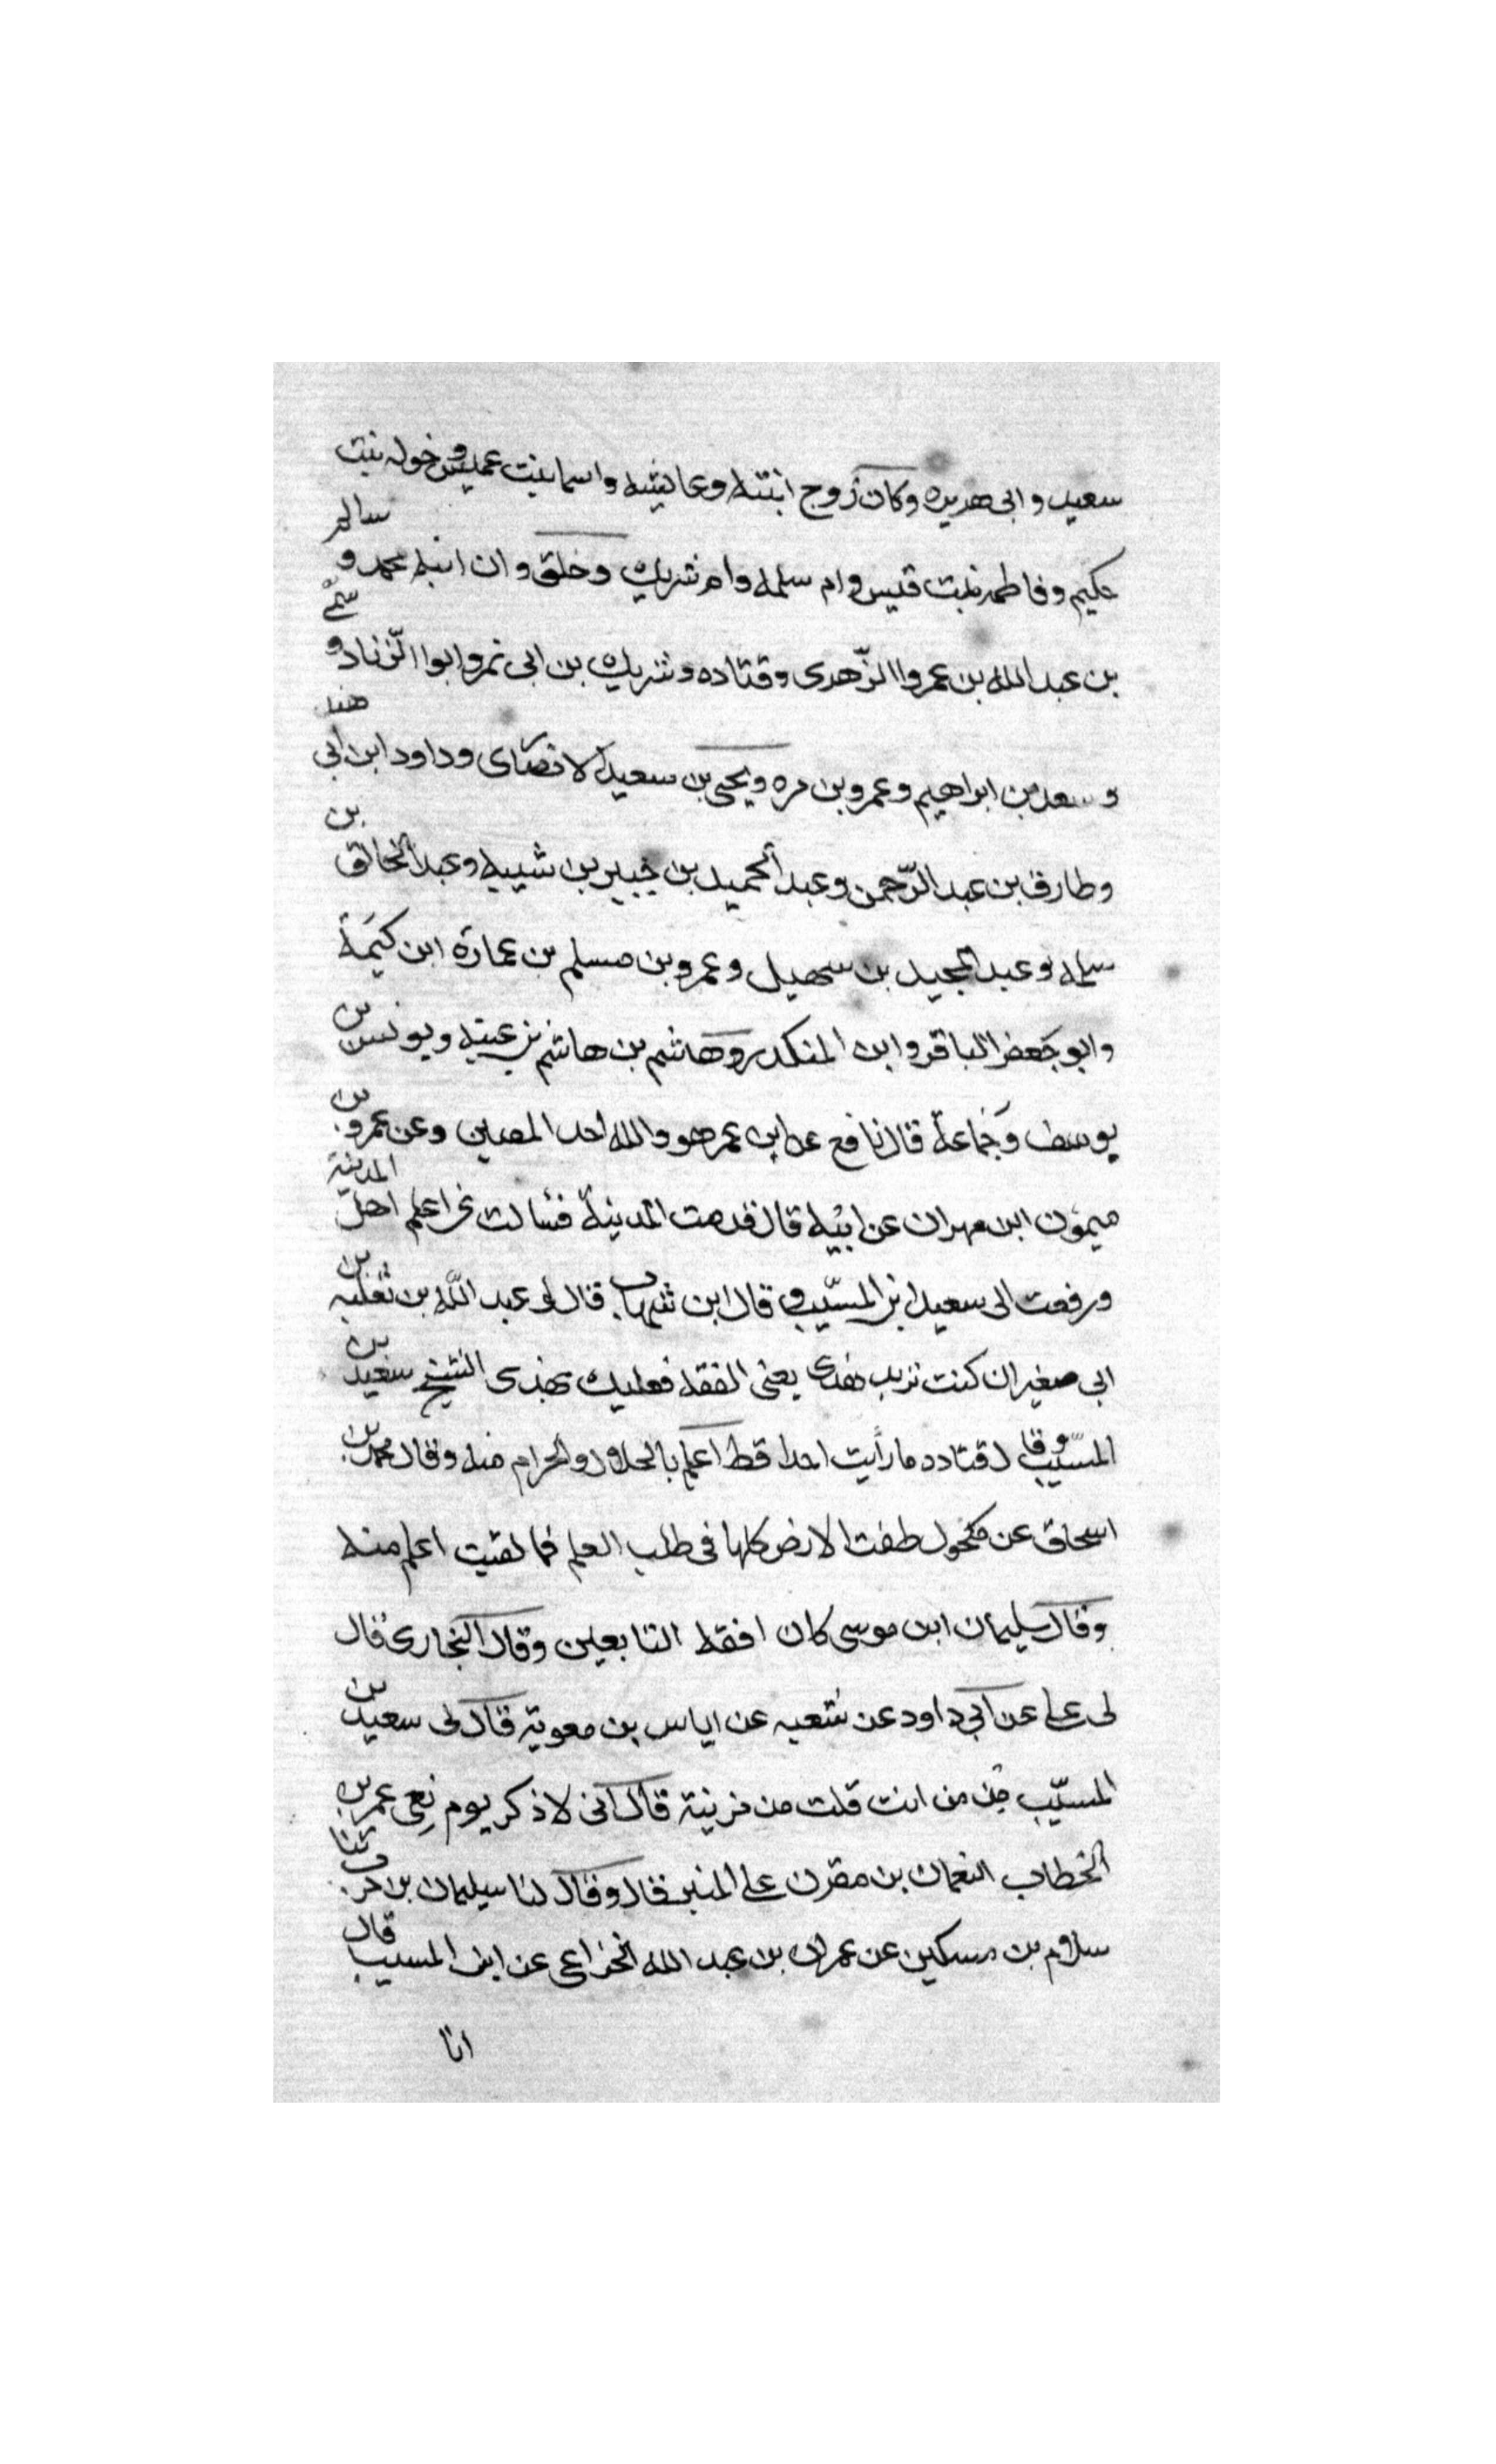 سعيد وابى هريره وكان زوج ابنته وعائشه واسما بنت عميس وخوله بنت
حكيم وفاطمه بنت قيس وام سلمه وام شريك وخلق وان ابنه محمد و سالم
بن عبد الله بن عمر واالزّهرى وقتاده وشريك بن ابى نمر وابوا الزّناد و سمى
وسعد بن ابراهيم وعمرو بن مره ويحيى بن سعيد الانصارى وداود ابن ابى هند
وطارق بن عبد الرّحمن وعبد الحميد بن جبير بن شيبه وعبد الخالق بن
سلمه وعبد المجيد بن سهيل وعمرو بن مسلم بن عمارة ابن اكيمة
وابو جعفر الباقر وابن المنكدر وهاشم بن هاشم بن عتبه ويونس بن
يوسف وجماعة قال نافع عن ابن عمر هو والله احد المفتين وعن عمرو بن
ميمون ابن مهران عن ابيه قال قدمت المدينة فسالت عن اعلم اهل المدينة
ورفعت الى سعيد ابن المسيّب و قال ابن شهاب قال لى عبد اللّه بن ثعلبه بن
ابى صغير ان كنت تريد هذى يعنى الفقه فعليك بهذى الشيخ سعيد بن
المسيّب وقال قتاده ما رأيت احدا قط اعلم بالحلال والحرام منه وقال محمد بن
اسحاق عن مكحول طفت الارض كلها فى طلب العلم فما لقيت اعلم منه
وقال سليمان ابن موسى كان افقه التابعين وقال البخارى قال
لى على عن ابى داود عن شعبه عن اياس بن معوية قال لى سعيد بن
المسيّب من انت قلت من مزينة قال انى لاذكر يوم نعى عمر بن
الخطاب النعمان بن مقرن على المنبر قال وقال لنا سليمان بن حرب ثنا
سلام بن مسكين عن عمران بن عبد الله الخزاعى عن ابن المسيب قال
انا